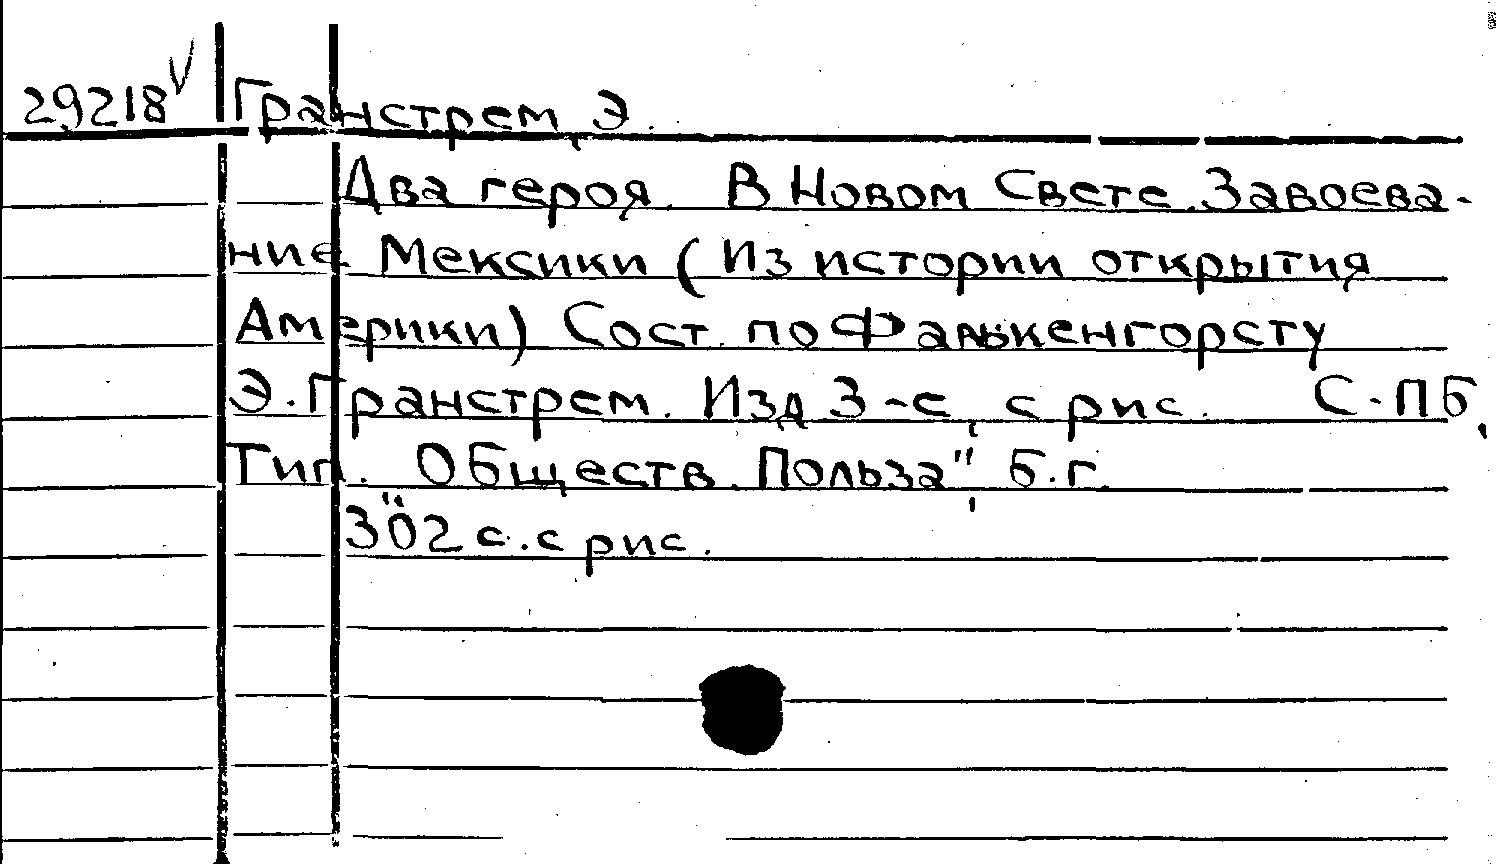 29218 V Гранстрем, Э.
Два героя. В Новом Свете. Завоева-
ние Мексики (Из истории открытия
Америки) Сост. по Фалькенгорсту
Э. Гранстрем. Изд 3-е, с рис. С-ПБ,
Тип. "Обществ. Польза", б.г.
302 с. с рис.